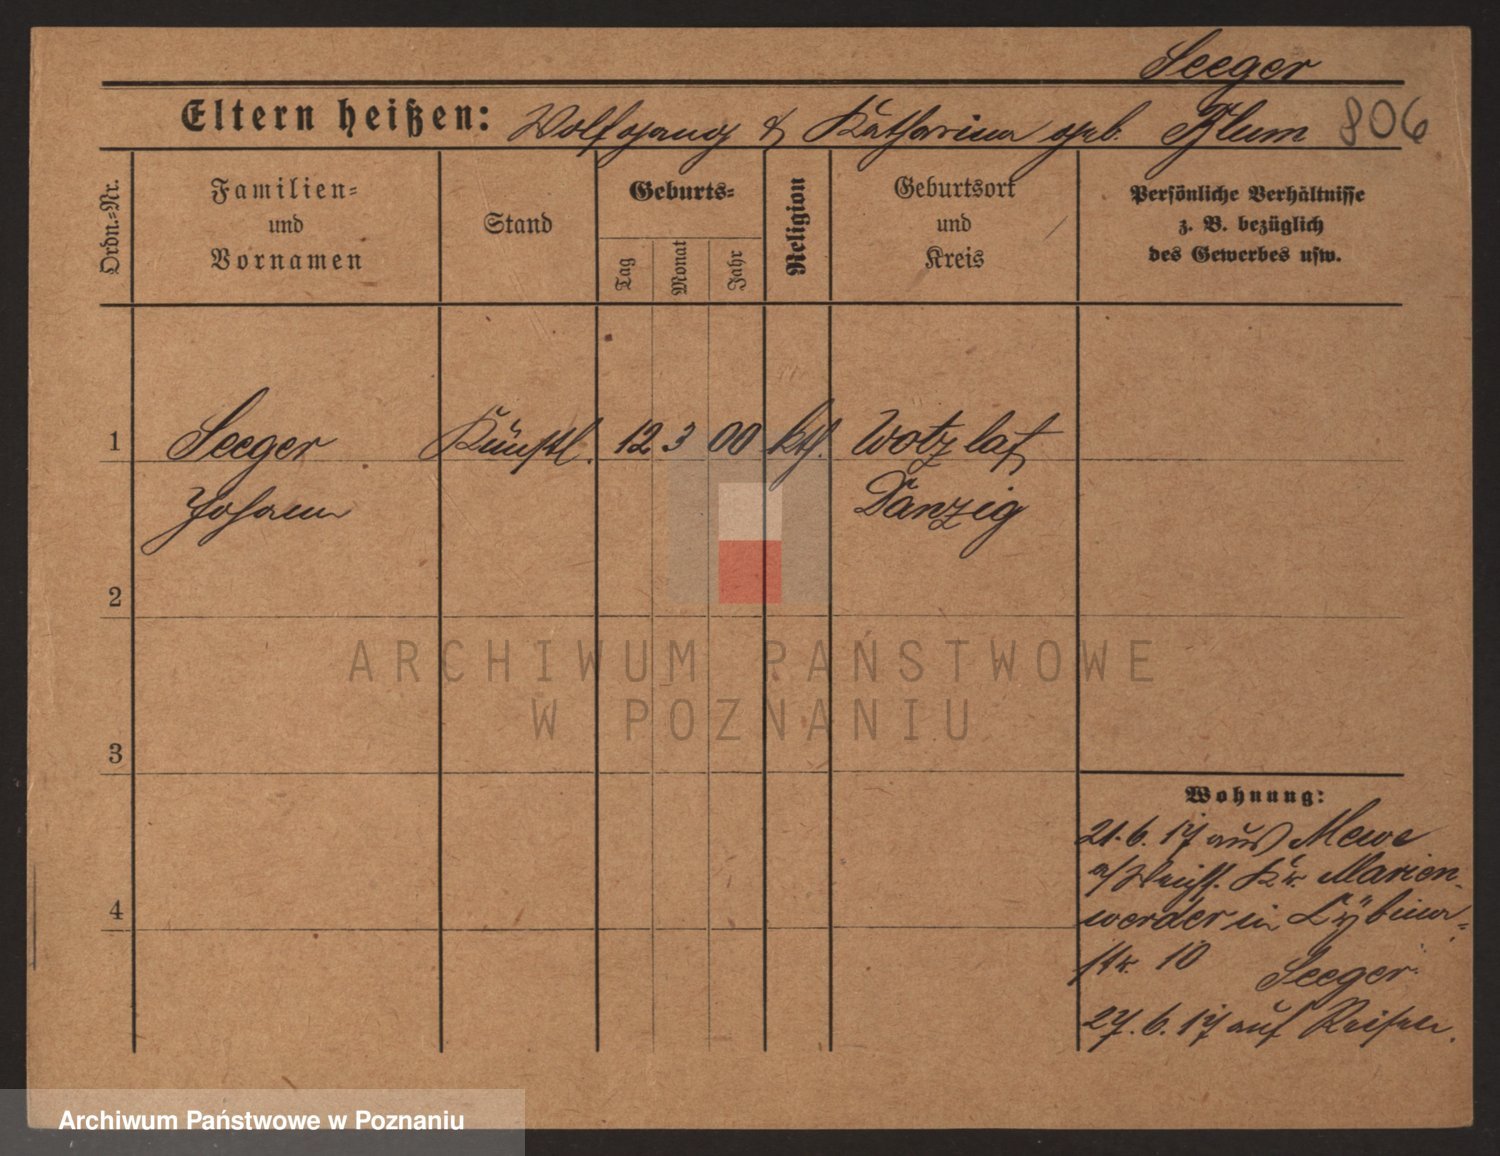 Seeger
Eltern heißen: Wolfgang & Katharina geb. Blum 806
Ordn.-Nr.
Familien-
und
Vornamen
Stand
Geburts-
Tag
Monat
Jahr
Religion
Geburtsort
und
Kreis
Persönliche Verhältnisse
z. B. bezüglich
des Gewerbes usw.
1 Seeger Künstl. 12 3 00 kth. Wotzlaf
Johann Danzig
2
3
4
Wohnung:
21.6.17 aus Mewe
a/Weichs. Kr. Marien-
werder in Cybina-
str. 10 Seeger
27.6.17 auf Reisen.
ARCHIWUM PAŃSTWOWE
W POZNANIU
Archiwum Państwowe w Poznaniu